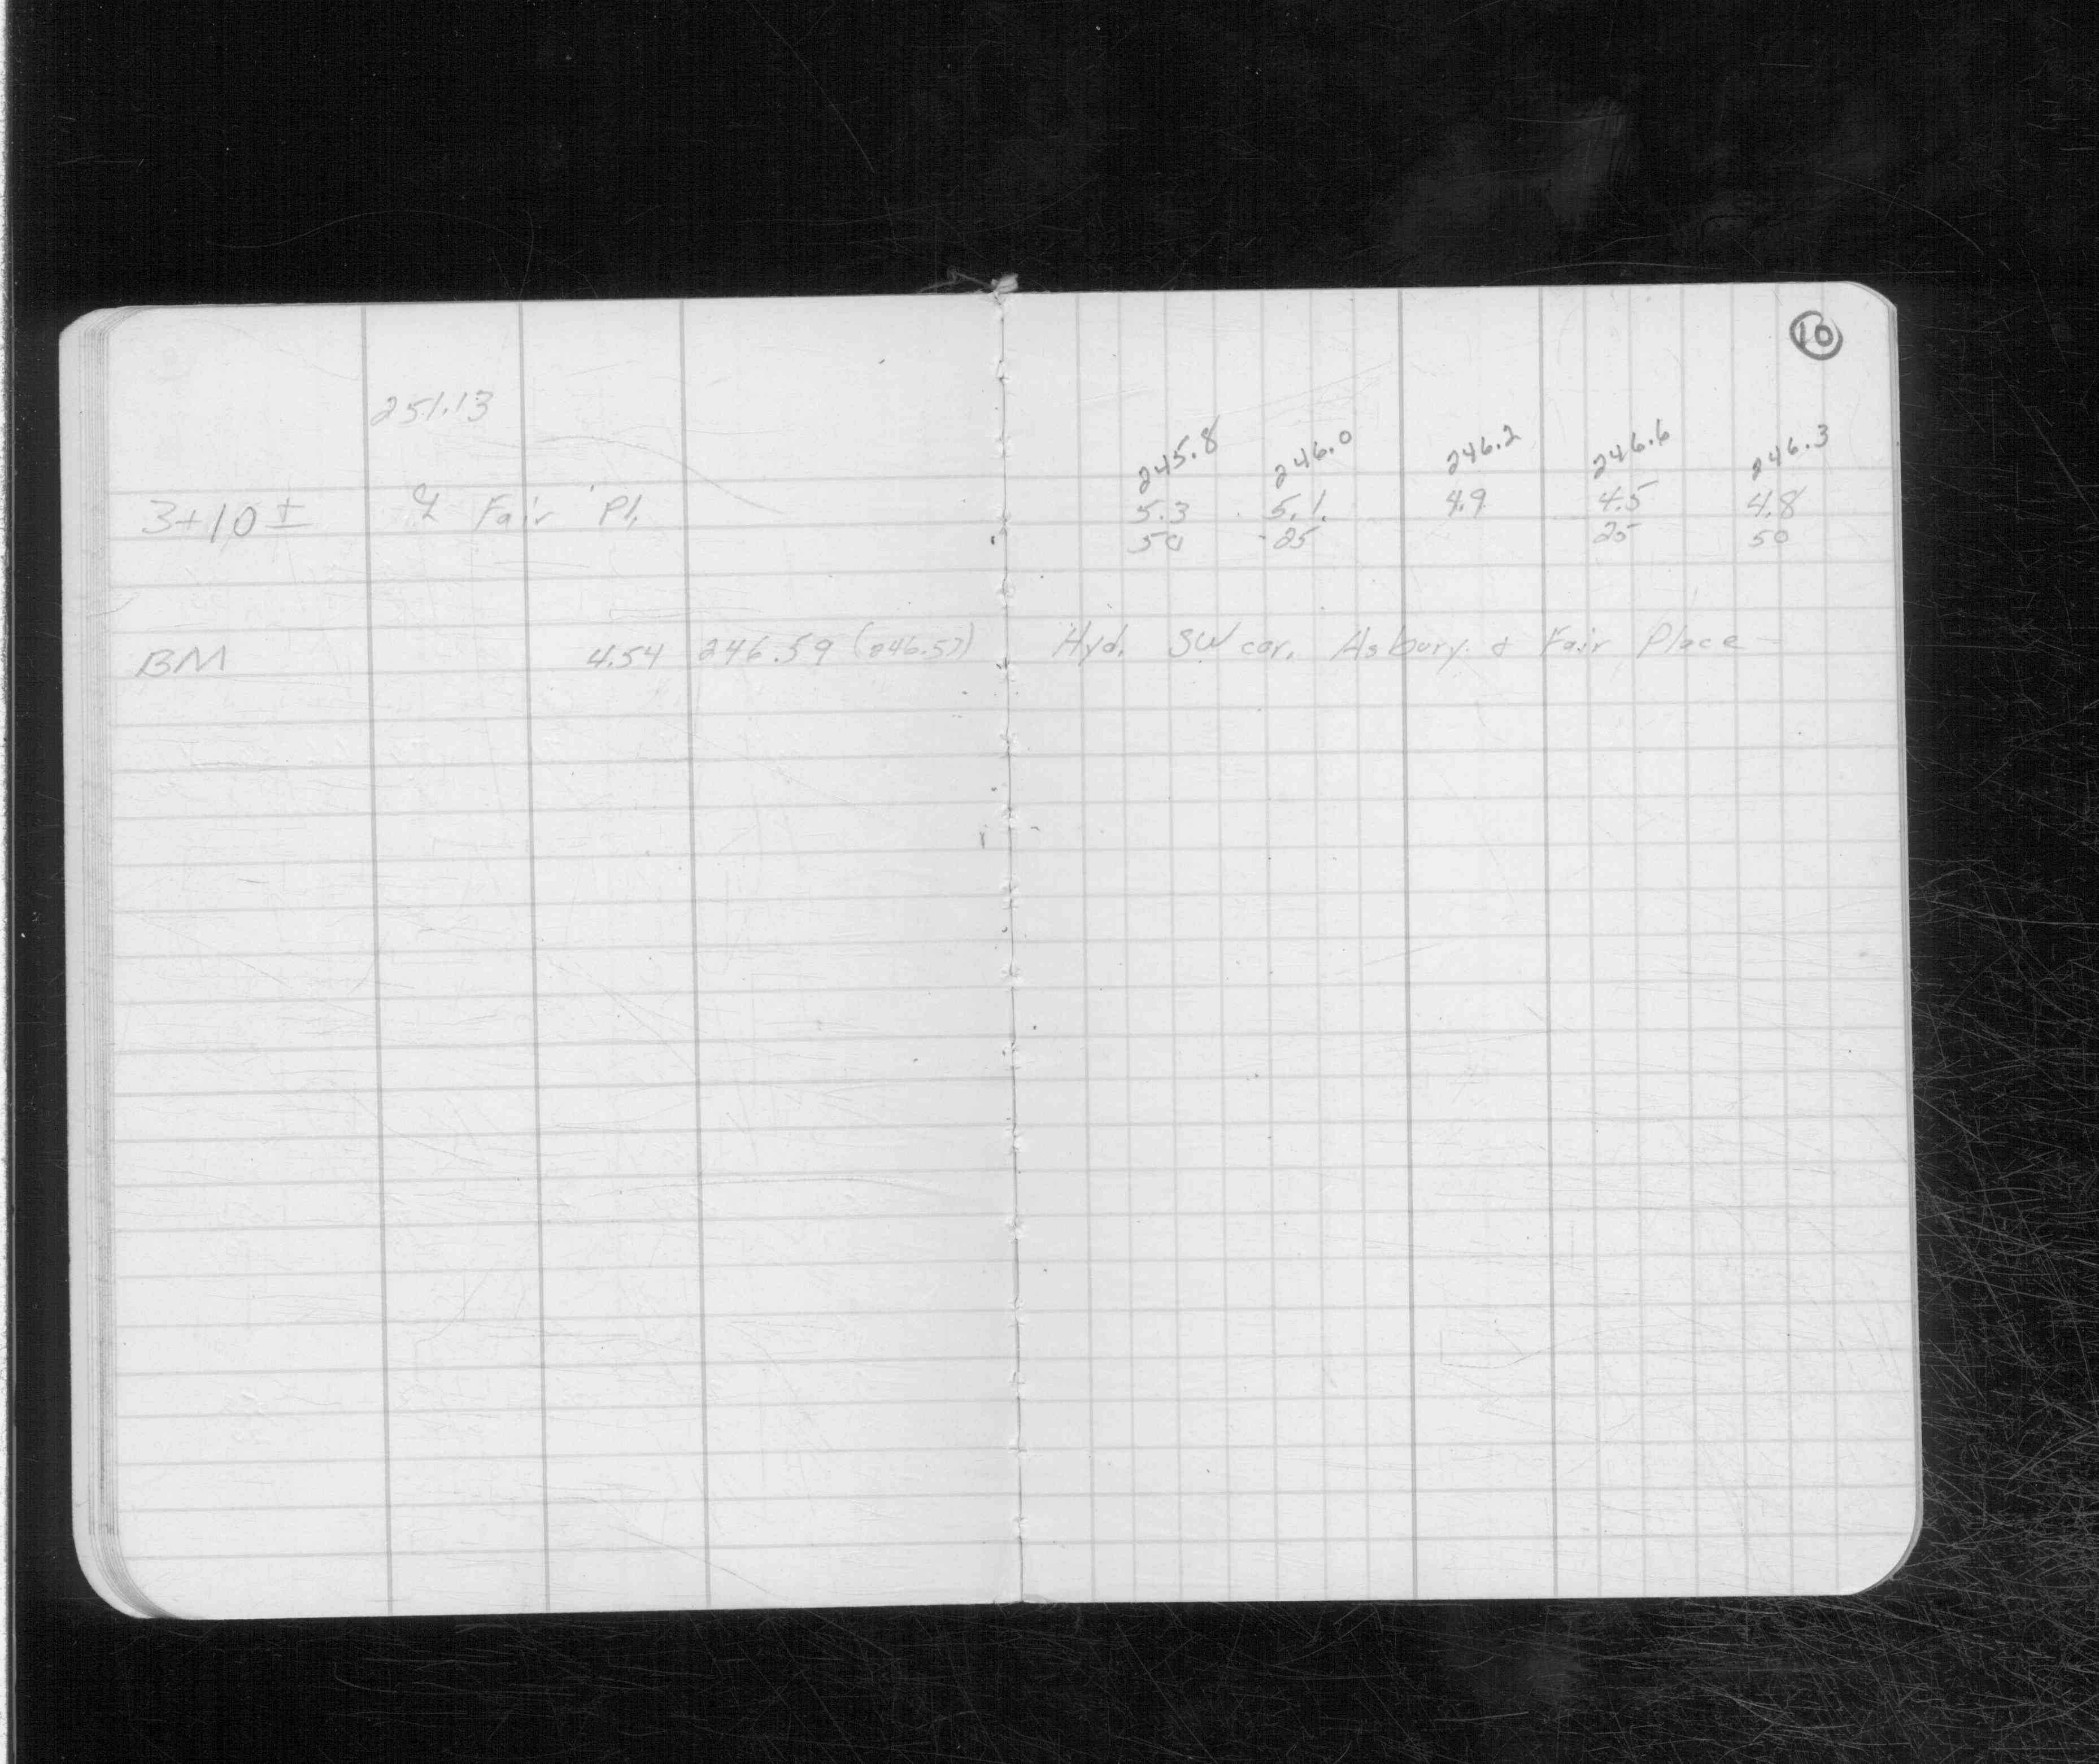 10
251.13
245.8 246.0 246.2 246.6 246.3
3+10 ± ℄ Fair Pl. 5.3 5.1 4.9 4.5 4.8
50 25 25 50
BM 4.54 246.59 (246.57) Hyd. SW cor. Asbury & Fair Place